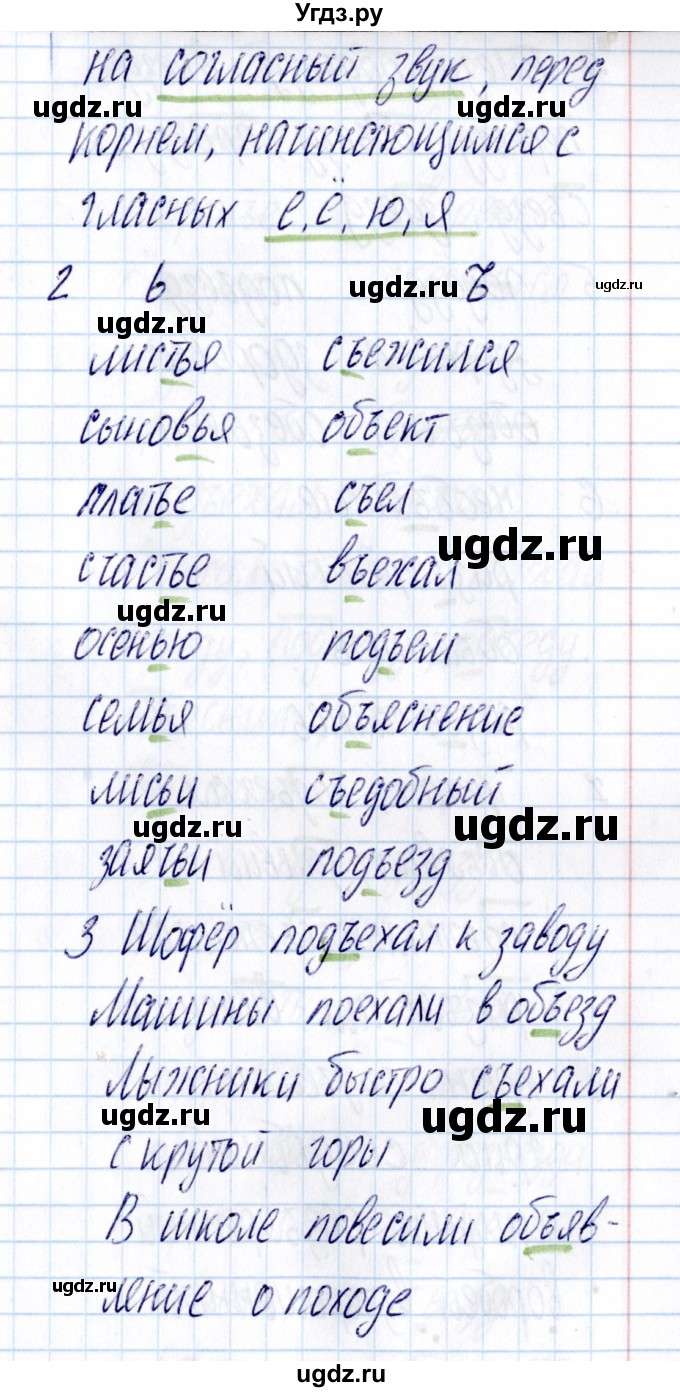 Угдз.ру
на согласный звук, перед
ugdz.ru ugdz.ru
корнем, начинающимся с
гласных е, ё, ю, я
2 ь ugdz.ru Ъ ugdz.ru
ugdz.ru
листья съежился
сыновья объект
платье съел
ugdz.ru
счастье въехал
ugdz.ru
осенью подъем
семья объяснение
лисьи съедобный
ugdz.ru ugdz.ru
заячьи подъезд
3 Шофёр подъехал к заводу
Машины поехали в объезд
Лыжники быстро съехали
ugdz.ru ugdz.ru
с крутой горы
В школе повесили объяв-
ugdz.ru
ление о походе
ugdz.ru